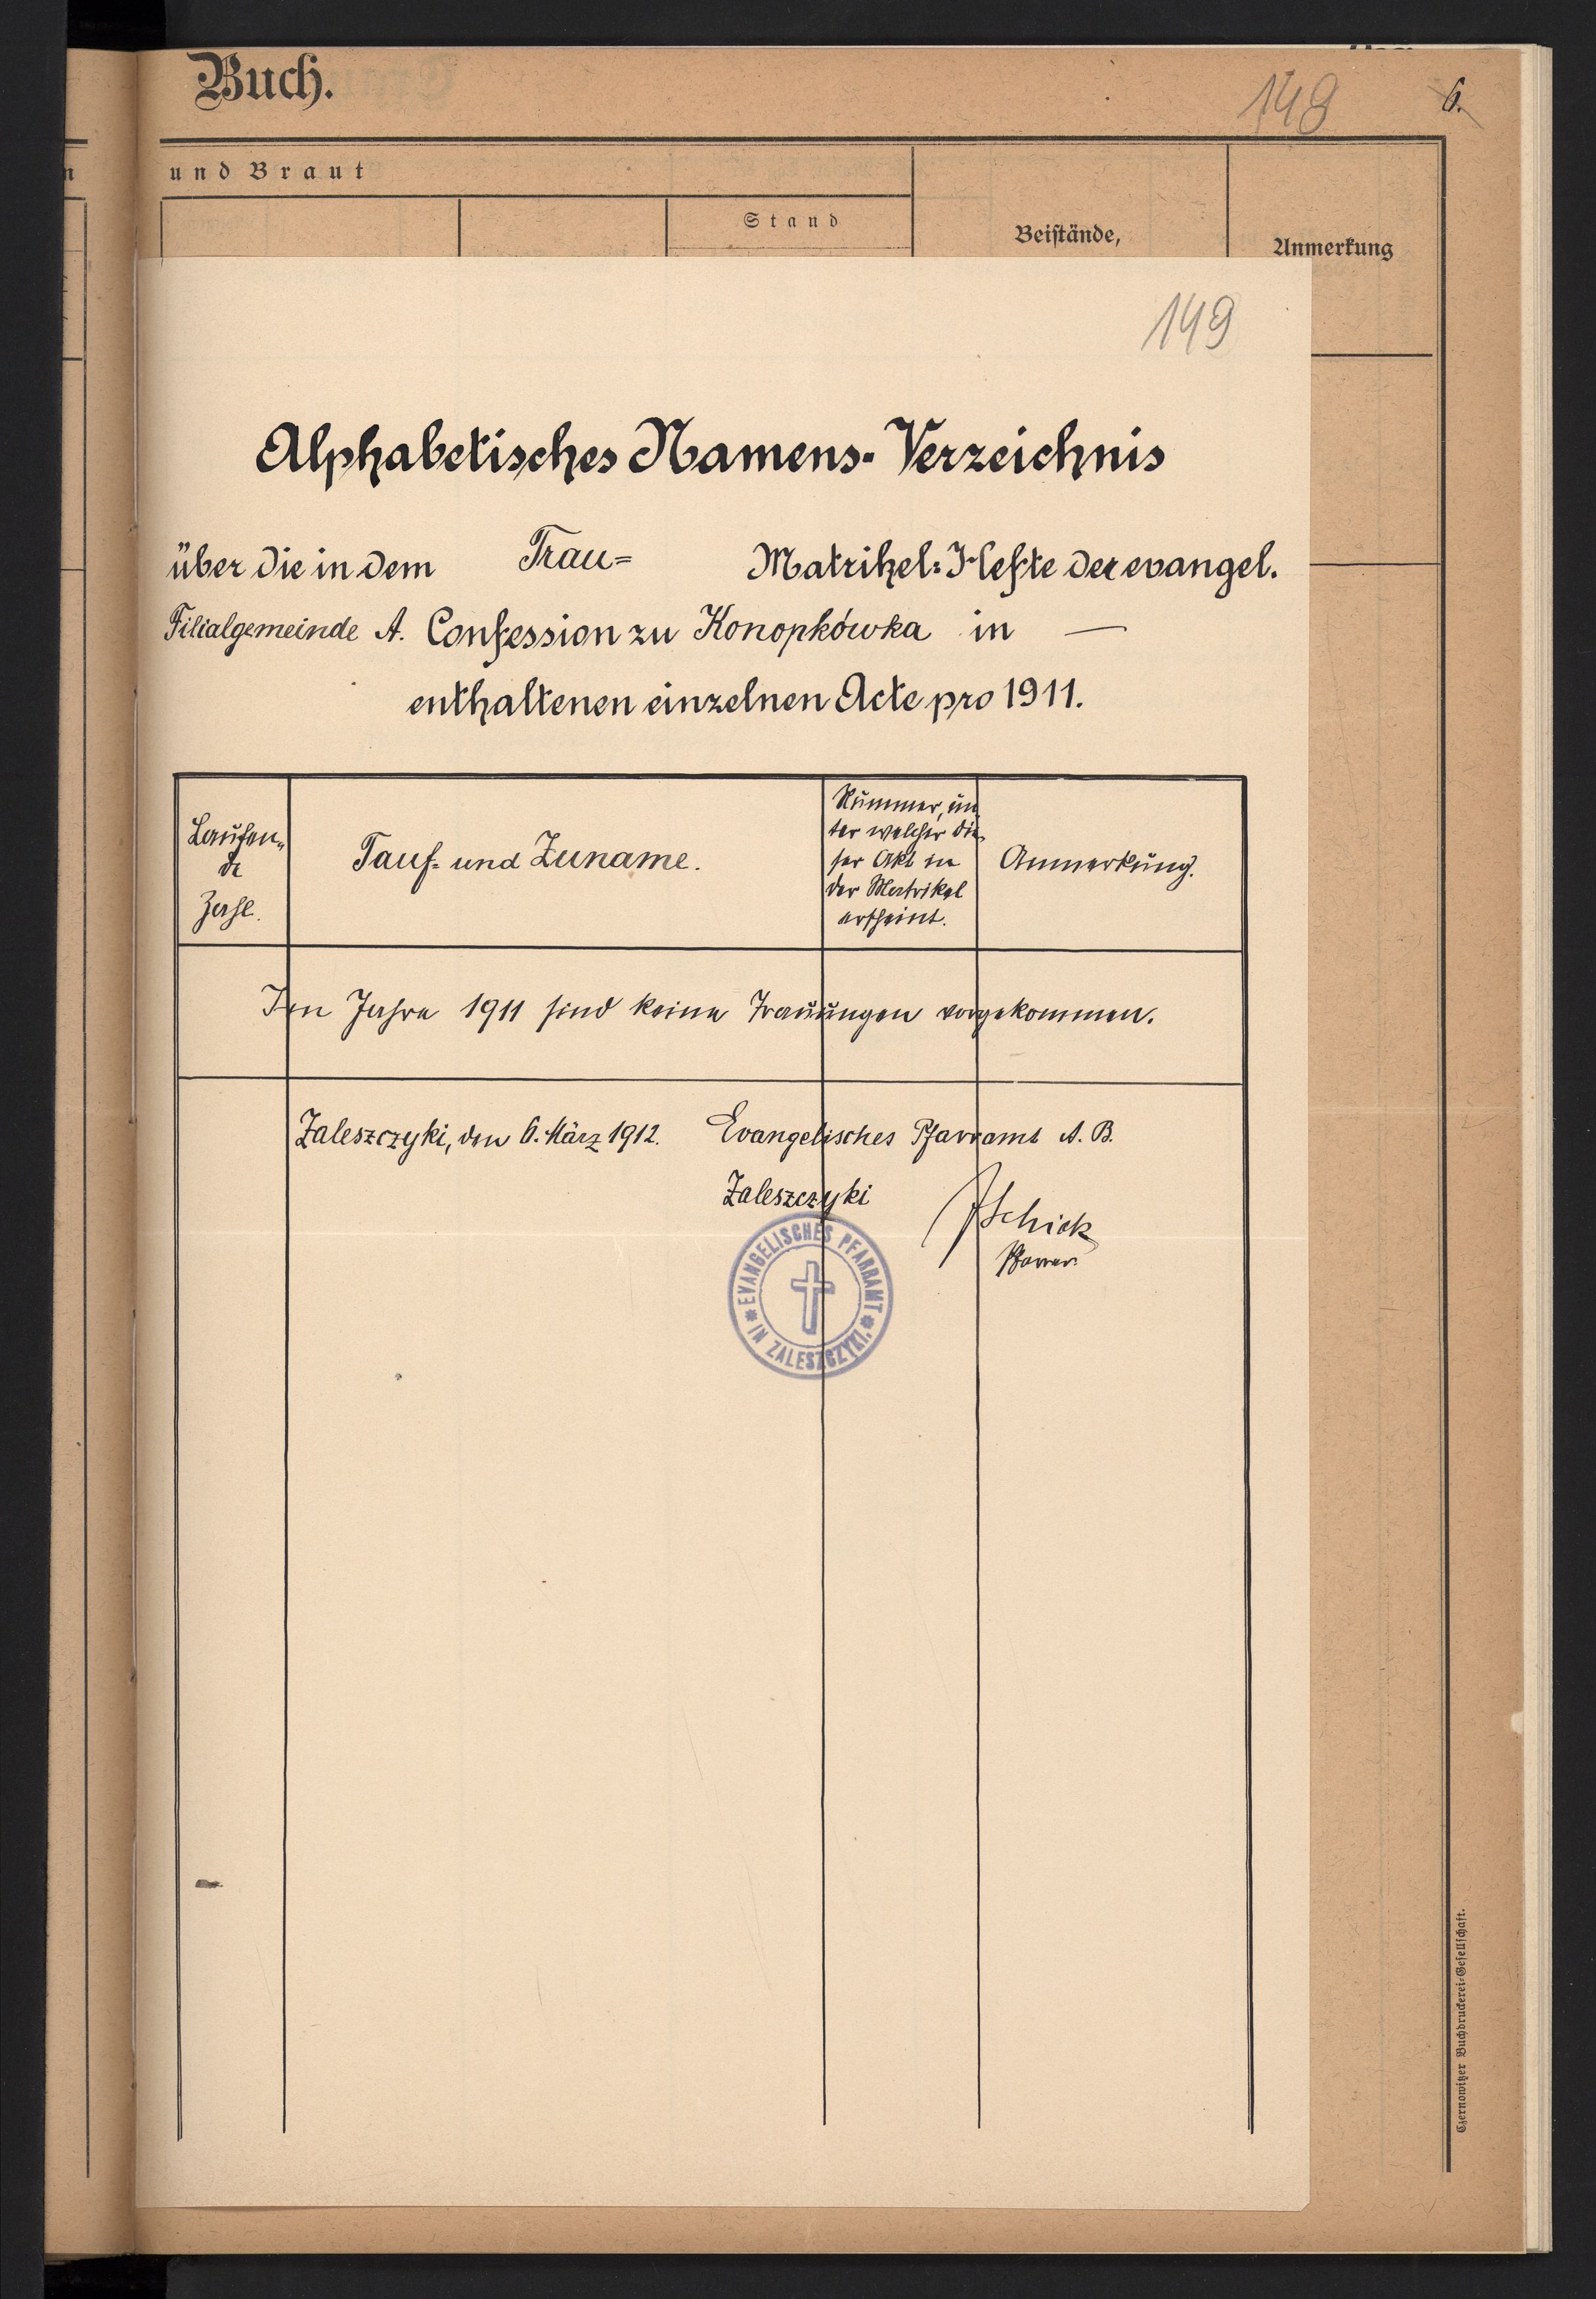 Buch.
149
6.
und Braut
Stand
Beistände,
Anmerkung
149
Alphabetisches Namens-Verzeichnis
über die in dem Trau= Matrikel=Hefte der evangel.
Filialgemeinde A. Confession zu Konopkówka in —
enthaltenen einzelnen Acte pro 1911.
Laufen„
de
Zahl.
Tauf= und Zuname.
Nummer, un
ter welcher die„
ser Akt in
der Matrikel
erscheint.
Anmerkung.
Im Jahre 1911 sind keine Trauungen vorgekommen.
Zaleszczyki, den 6. März 1912. Evangelisches Pfarramt A. B.
Zaleszczyki
JSchick
Pfarrer.
EVANGELISCHES PFARRAMT
IN ZALESZCZYKI.
Czernowitzer Buchdruckerei=Gesellschaft.